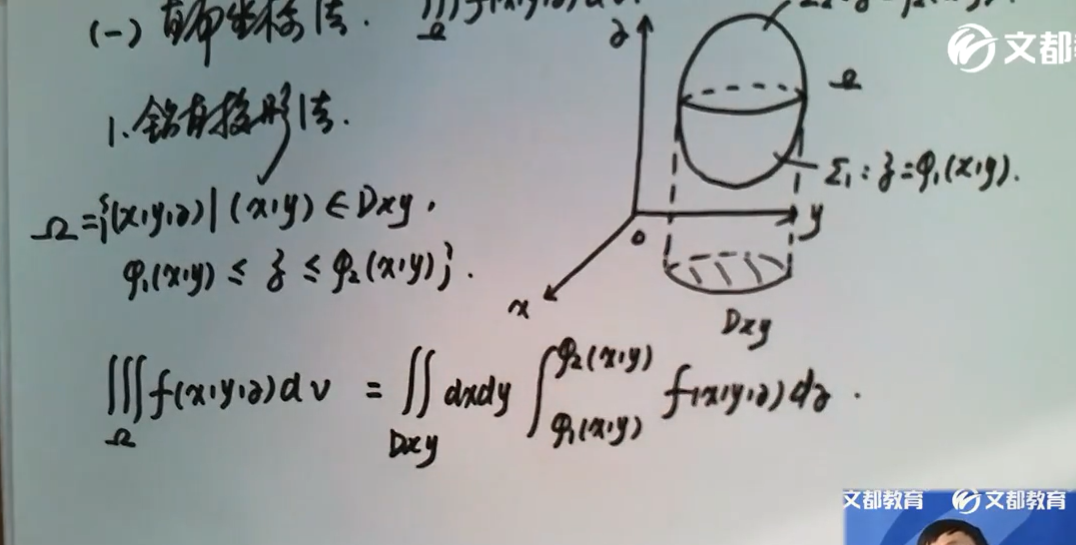 (一) 直角坐标法. ∭Ω f(x,y,z)dv.
文都教
1. 铅直投影法.
Ω={(x,y,z)|(x,y)∈Dxy,
φ₁(x,y) ≤ z ≤ φ₂(x,y)}.
z
Ω
Σ₁: z=φ₁(x,y).
o
y
x
Dxy
∭Ω f(x,y,z)dv = ∬Dxy dxdy ∫φ₁(x,y)^φ₂(x,y) f(x,y,z)dz.
文都教育 文都教育